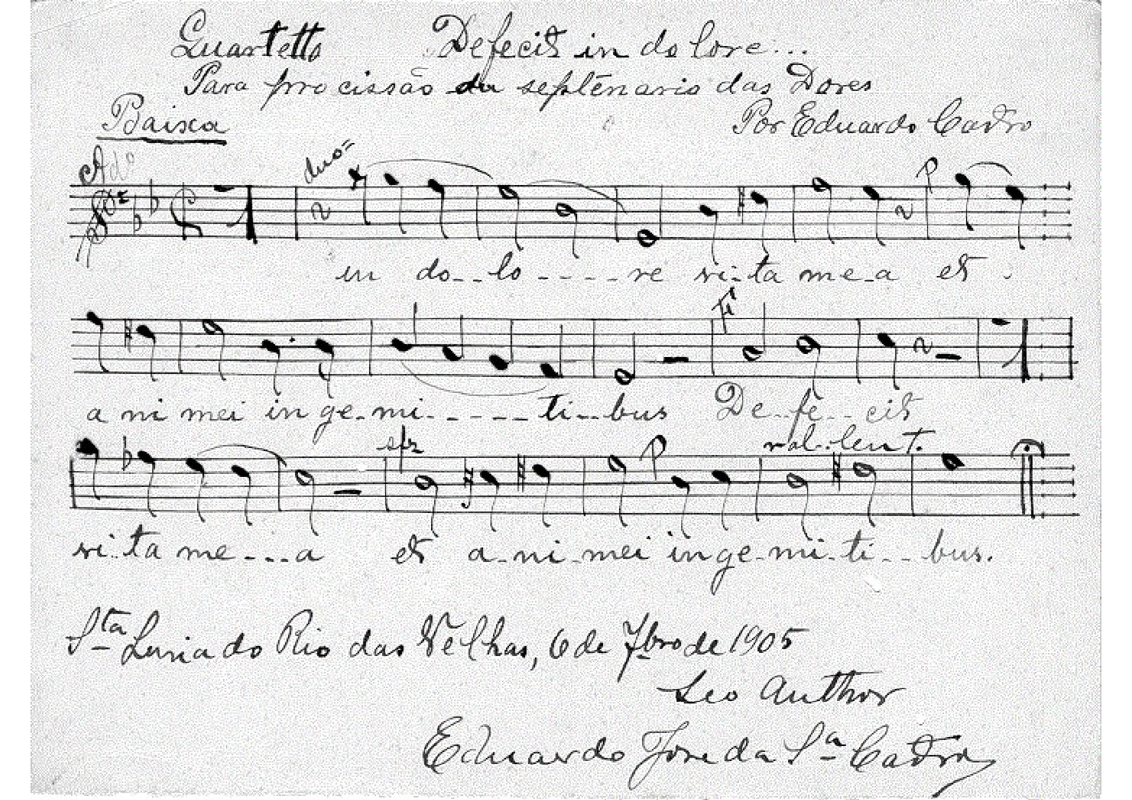 Quartetto Defecit in dolore...
Para procissão du septēnario das Dores
Baixa
Por Eduardo Castro
Ad.º
duo=
P
in do--lo----re vi-ta me-a et
F
a ni mei in ge-mi-----ti--bus De-fe--cit
sfz P ral-lent.
vi-ta me---a et a-ni-mei in ge-mi-ti--bus.
Sta Luzia do Rio das Velhas, 6 de 7bro de 1905
Seo Author
Eduardo José da Sª Castro